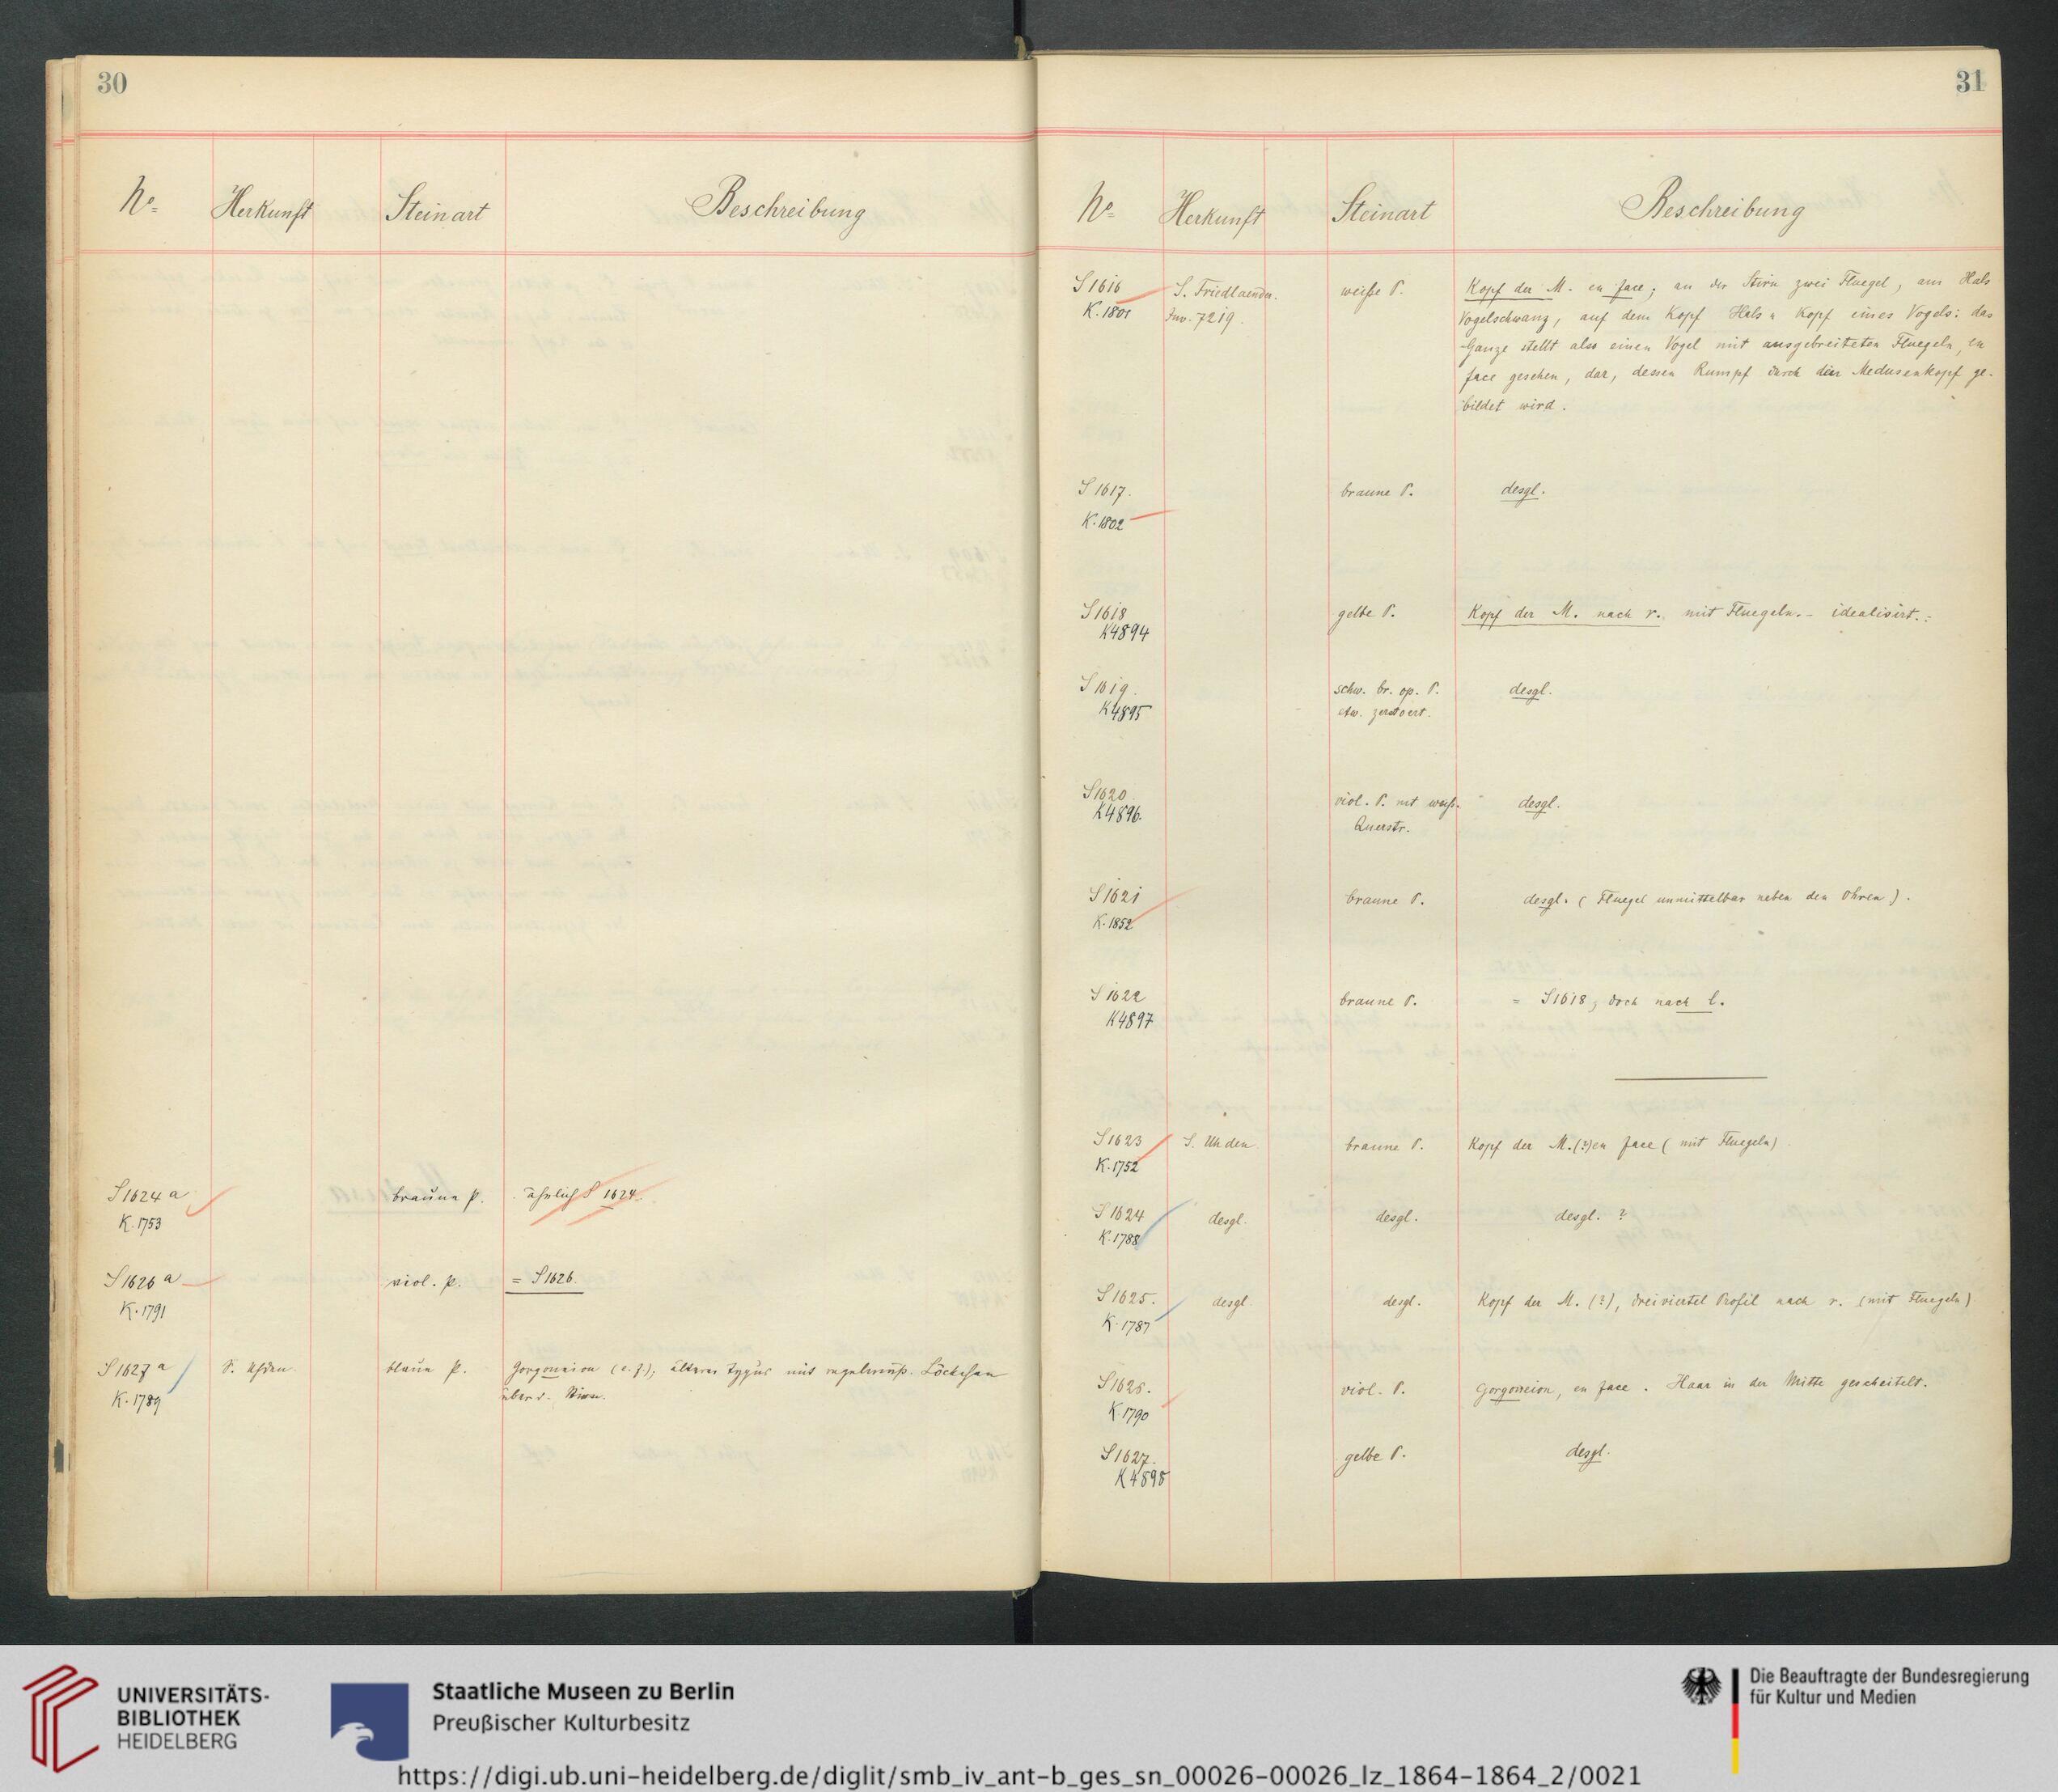 30
No Herkunft Steinart Beschreibung
S1624 a braune P. ähnlich S 1624.
K.1753
S1626 a viol. P. = S1626.
K.1791
S1627 a S. Uhden blaue P. Gorgoneion (e. f.), älterer Typus mit regelmäß. Löckchen
K.1789 über d. Stirn.
31
No Herkunft Steinart Beschreibung
S1616 S. Friedlaender. weiße P. Kopf der M. en face; an der Stirn zwei Fluegel, am Hals
K.1801 Inv. 7219. Vogelschwanz, auf dem Kopf Hals u Kopf eines Vogels: das
Ganze stellt also einen Vogel mit ausgebreiteten Fluegeln, en
face gesehen, dar, dessen Rumpf durch den Medusenkopf ge-
bildet wird.
S1617. braune P. desgl.
K.1802
S1618 gelbe P. Kopf der M. nach r. mit Fluegeln. – idealisirt.
K4894
S1619. schw. br. op. P. desgl.
K4895 etw. zerstoert.
S1620 viol. P. mit weiß. desgl.
K4896. Querstr.
S1621 braune P. desgl. (Fluegel unmittelbar neben den Ohren).
K.1852
S1622 braune P. = S1618, doch nach l.
K4897
S1623 S. Uhden braune P. Kopf der M. (?) en face (mit Fluegeln)
K.1752
S1624 desgl. desgl. desgl. ?
K.1788
S1625. desgl. desgl. Kopf der M. (?), dreiviertel Profil nach r. (mit Fluegeln)
K.1787
S1626. viol. P. Gorgoneion, en face. Haar in der Mitte gescheitelt.
K.1790
S1627. gelbe P. desgl.
K4898
UNIVERSITÄTS-
BIBLIOTHEK
HEIDELBERG
Staatliche Museen zu Berlin
Preußischer Kulturbesitz
Die Beauftragte der Bundesregierung
für Kultur und Medien
https://digi.ub.uni-heidelberg.de/diglit/smb_iv_ant-b_ges_sn_00026-00026_lz_1864-1864_2/0021